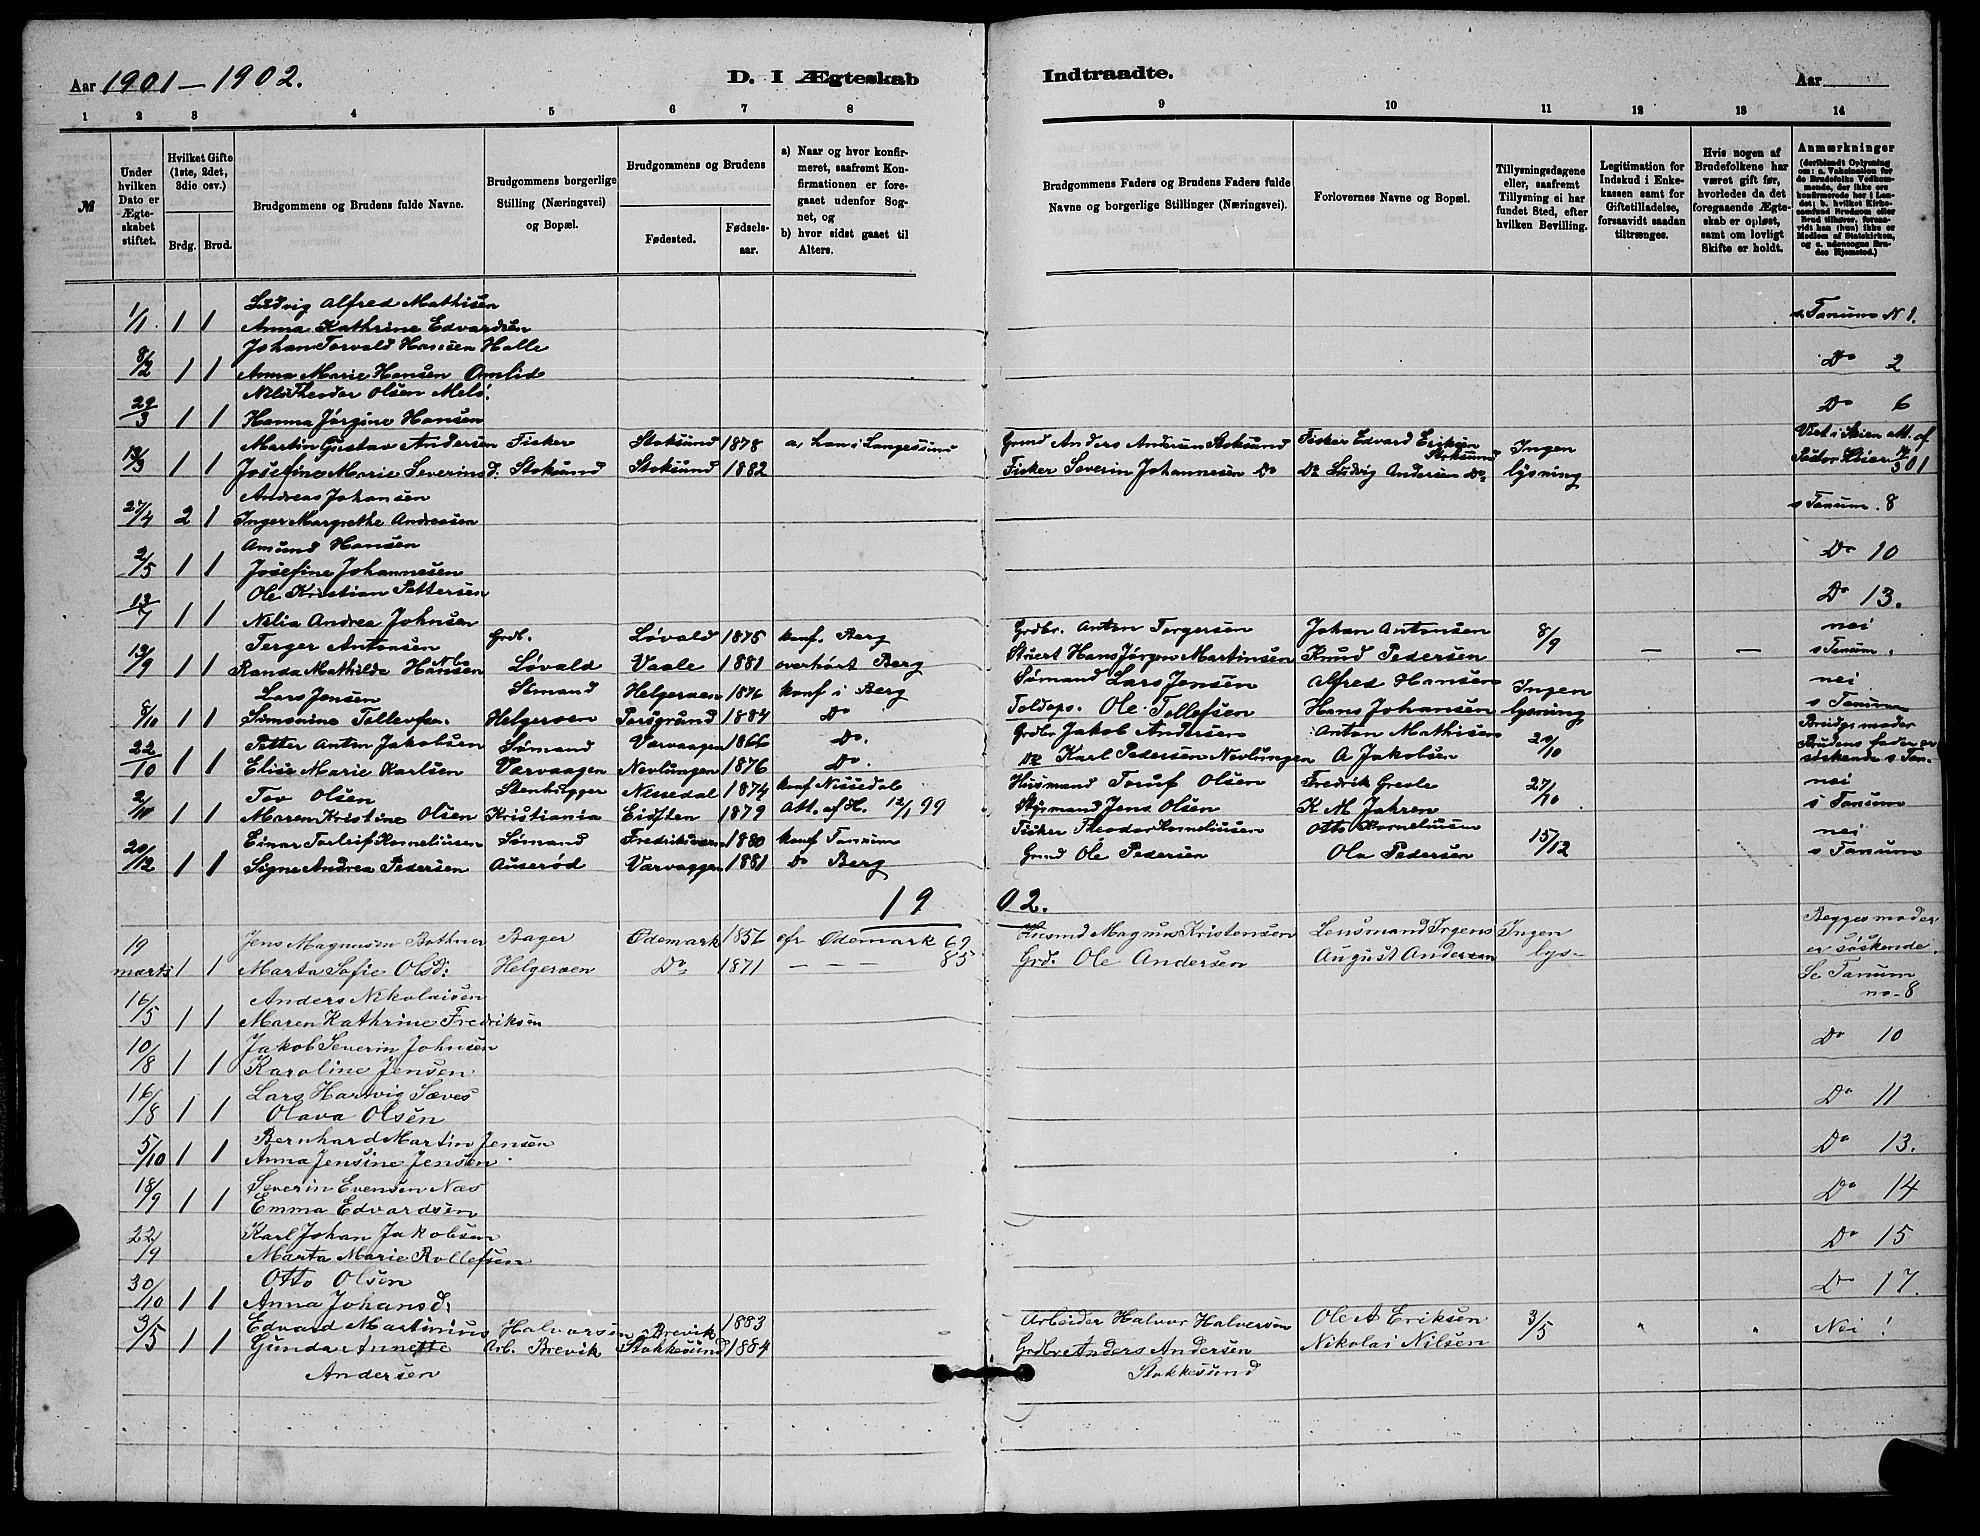 Aar 1901-1902.
D. I Ægteskab
Indtraadte.
Aar
1 2 3 4 5 6 7 8 9 10 11 12 13 14
№
Under hvilken Dato er Ægteskabet stiftet.
Hvilket Gifte (1ste, 2det, 3die osv.)
Brdg. Brud.
Brudgommens og Brudens fulde Navne.
Brudgommens borgerlige Stilling (Næringsvei) og Bopæl.
Brudgommens og Brudens
Fødested. Fødselsaar.
a) Naar og hvor konfirmeret, saafremt Konfirmationen er foregaaet udenfor Sognet, og
b) hvor sidst gaaet til Alters.
Brudgommens Faders og Brudens Faders fulde Navne og borgerlige Stillinger (Næringsvei).
Forlovernes Navne og Bopæl.
Tillysningsdagene eller, saafremt Tillysning ei har fundet Sted, efter hvilken Bevilling.
Legitimation for Indskud i Enkekassen samt for Giftetilladelse, forsaavidt saadan tiltrænges.
Hvis nogen af Brudefolkene har været gift før, hvorledes da det foregaaende Ægteskab er opløst, samt om lovligt Skifte er holdt.
Anmærkninger
(deriblandt Oplysning om: a. Vakcination for de Brudefolks Vedkommende, der ikke ere konfirmerede her i Landet; b. hvilket Kirkesamfund Brudgom eller Brud tilhører, forsaavidt han (hun) ikke er Medlem af Statskirken, og c. udensogns Brudes Hjemsted.)
Ludvig Alfred Mathisen
1/1. 1 1 Anna Kathrine Edvardsen s. Tanum N 1.
Johan Torvald Hansen Halle
8/2 1 1 Anna Marie Hansen Omlid Do 2
Nils Theodor Olsen Melø.
29/3 1 1 Hanna Jørgine Hansen Do 6
Martin Gustav Andersen Fisker Stoksund 1878 a, Lan i Langesund Grmd Anders Andersen Stoksund Fisker Edvard Eriksen Stoksund Ingen
1 1 Josefine Marie Severinsd. Stoksund Stoksund 1882 Fisker Severin Johannesen Do Do Ludvig Andersen Do lysning
Andreas Johansen
27/4 2 1 Inger Margrethe Andreasen s Tanum. 8
Amund Hansen
2/5 1 1 Josefine Johannesen Do 10
Ole Kristian Pettersen
13/7 1 1 Nilia Andrea Johnsen Do 13.
Terger Antonsen Grdb. Løvald 1875 konf. Berg Grdbr. Anton Torgersen Johan Antonsen 8/9 nei
13/9 1 1 Randa Mathilde Hansen Løvald Vaale 1881 overhørt Berg Stuert Hans Jørgen Martinsen Knud Pedersen — — s Tanum.
Lars Jensen Sømand Helgeroen 1876 konf i Berg Sømand Lars Jensen Alfred Hansen Ingen nei
8/10 1 1 Simonine Tollevsen Helgeroen Porsgrund 1884 Do Toldops. Ole Tollefsen Hans Johansen lysning s Tanum
Petter Anton Jakobsen Sømand Varvaagen 1866 Do. Grdbr Jakob Andersen Anton Mathisen 20/10 Breidgs moder
22/10 1 1 Elise Marie Karlsen Varvaagen Nevlungen 1876 Do. Do Karl Pedersen Nevlungen A Jakobsen Brudens fader er søskende s Tan.
Tov Olsen Stenhugger Nissedal 1874 konf Nissedal Husmand Toruf Olsen Fredrik Grevle 27/10 nei
2/10 1 1 Maren Kristine Olsen Kristiania Eidsten 1879 Att. af H. 12/1 99 Styrmand Jens Olsen K M Jahren s Tanum
Einar Torleif Korneliussen Sømand Fredriksværn 1880 konf Tanum Fisker Theodor Korneliussen Otto Korneliussen 15/12 nei
20/12 1 1 Signe Andrea Pedersen Auserød Varvaagen 1881 Do Berg Grmd Ole Pedersen Ola Pedersen s Tanum
1902.
19 Jens Magnusen Bothner Bager Ødemark 1857 efr Ødemark 69 Husmd Magnus Kristensen Lensmand Irgens Ingen Begges moder
marts 1 1 Marta Sofie Olsd. Helgeroen Do 1871 — — — 85 Grd. Ole Andersen August Andersen lys- er søskende.
Se Tanum no. 8
Anders Nikolaisen
16/5 1 1 Maren Kathrine Fredriksen
Jakob Severin Johnsen Do 10
10/8 1 1 Karoline Jensen.
Lars Hartvig Sæves Do 11
16/8 1 1 Olava Olsen
Bernhard Martin Jensen Do 13.
5/10 1 1 Anna Jensine Jensen.
Severin Evensen Næs Do 14
18/9 1 1 Emma Edvardsen
Karl Johan Jakobsen Do 15
22/9 Marta Marie Rollefsen
Otto Olsen Do 17.
30/10 1 1 Anna Johansd.
Edvard Martinius Halvorsen Brevik 1883 Arbeider Halvor Halversen Ole A Eriksen 3/5 " " Nei!
3/5 1 1 Gunda Annette Arb. Brevik Stokkesund 1884 Grdbr Anders Andersen Nikolai Nilsen
Andersen Stokkesund